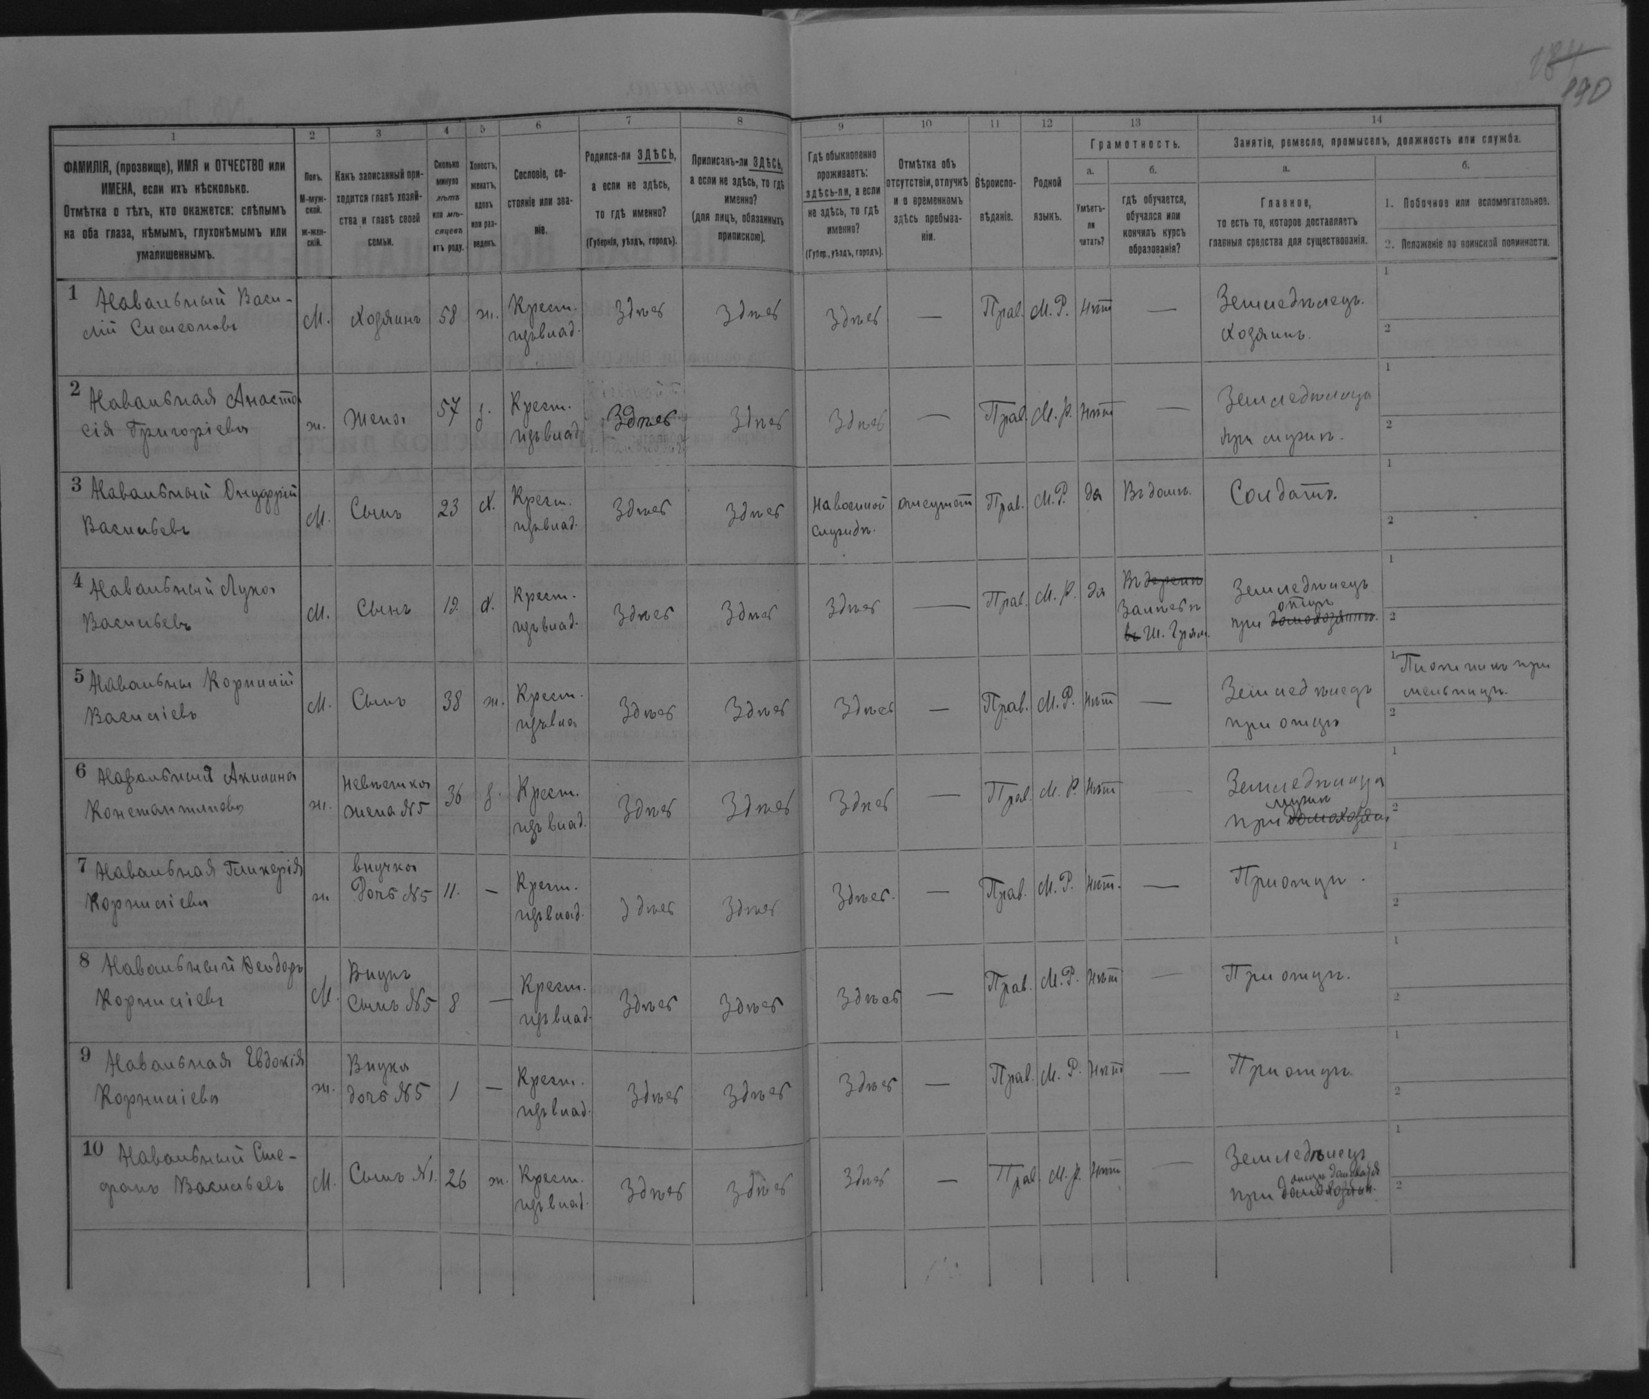 184
190
1
2
3
4
5
6
7
8
9
10
11
12
13
14
ФАМИЛІЯ, (прозвище), ИМЯ и ОТЧЕСТВО или
ИМЕНА, если ихъ нѣсколько.
Отмѣтка о тѣхъ, кто окажется: слѣпымъ
на оба глаза, нѣмымъ, глухонѣмымъ или
умалишеннымъ.
Полъ.
М-муж-
ской.
ж-жен-
скій.
Какъ записанный при-
ходится главѣ хозяй-
ства и главѣ своей
семьи.
Сколько
минуло
лѣтъ
или мѣ-
сяцевъ
отъ роду.
Холостъ,
женатъ,
вдовъ
или раз-
веденъ.
Сословіе, со-
стояніе или зва-
ніе.
Родился-ли ЗДѢСЬ,
а если не здѣсь,
то гдѣ именно?
(Губернія, уѣздъ, городъ).
Приписанъ-ли ЗДѢСЬ,
а если не здѣсь, то гдѣ
именно?
(для лицъ, обязанныхъ
припискою).
Гдѣ обыкновенно
проживаетъ:
здѣсь-ли, а если
не здѣсь, то гдѣ
именно?
(Губер., уѣздъ, городъ).
Отмѣтка объ
отсутствіи, отлучкѣ
и о временномъ
здѣсь пребыва-
ніи.
Вѣроиспо-
вѣданіе.
Родной
языкъ.
Грамотность.
а.
Умѣетъ-
ли
читать?
б.
гдѣ обучается,
обучался или
кончилъ курсъ
образованія?
Занятіе, ремесло, промыселъ, должность или служба.
а.
Главное,
то есть то, которое доставляетъ
главныя средства для существованія.
б.
1. Побочное или вспомогательное.
2. Положеніе по воинской повинности.
1 Навальный Васи-
лій Симеоновъ
М.
Хозяинъ
58
ж.
Крест.
изъ влад.
Здѣсь
Здѣсь
Здѣсь
—
Прав.
М. Р.
Нѣт
—
Земледѣлецъ.
хозяинъ.
1
2
2 Навальная Анаста
сія Григоріева
ж.
Жена
57
з.
Крест.
изъ влад.
Здѣсь
Здѣсь
Здѣсь
—
Прав.
М. Р.
Нѣт
—
Земледѣлица
при мужѣ.
1
2
3 Навальный Онуфрій
Васильевъ
М.
Сынъ
23
х.
Крест.
изъ влад.
Здѣсь
Здѣсь
На военной
службѣ.
отсутст
Прав.
М. Р.
да
Въ домѣ.
Солдатъ.
1
2
4 Навальный Лука
Васильевъ
М.
Сынъ
12
х.
Крест.
изъ влад.
Здѣсь
Здѣсь
Здѣсь
—
Прав.
М. Р.
да
Въ
Ш. Грам.
Земледѣлецъ
отцѣ
при домохозяинѣ.
1
2
5 Навальный Корнилій
Василіевъ
М.
Сынъ
38
ж.
Крест.
изъ вла
Здѣсь
Здѣсь
Здѣсь
—
Прав.
М. Р.
Нѣт
—
Земледѣлецъ
при отцѣ
1 Плотникъ при
мельницѣ.
2
6 Навальная Акилина
Константинова
ж.
невѣстка
жена №5
36
з.
Крест.
изъ влад.
Здѣсь
Здѣсь
Здѣсь
—
Прав.
М. Р.
Нѣт
—
Земледѣлица
мужѣ
при домохозяи
1
2
7 Навальная Гликерія
Корниліева
ж
внучка
дочь №5
11.
—
Крест.
изъ влад.
Здѣсь
Здѣсь
Здѣсь.
—
Прав.
М. Р.
Нѣт.
—
При отцѣ.
1
2
8 Навальный Ѳеодоръ
Корниліевъ
М.
Внукъ
Сынъ №5
8
—
Крест.
изъ влад.
Здѣсь
Здѣсь
Здѣсь
—
Прав.
М. Р.
Нѣт
—
При отцѣ.
1
2
9 Навальная Евдокія
Корниліева
ж.
Внука
дочь №5
1
—
Крест.
изъ влад.
Здѣсь
Здѣсь
Здѣсь
—
Прав.
М. Р.
Нѣт
—
При отцѣ.
1
2
10 Навальный Сте-
фанъ Васильевъ
М.
Сынъ №1.
26
ж.
Крест.
изъ влад.
Здѣсь
Здѣсь
Здѣсь
—
Прав
М. Р.
Нѣт
—
Земледѣлецъ
при домохозяин.
1
2